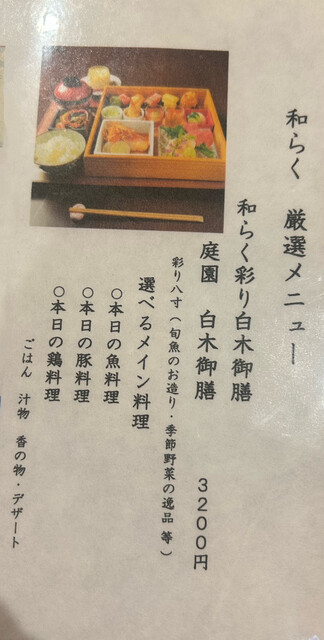 和らく 厳選メニュー
和らく彩り白木御膳
庭園 白木御膳 3200円
彩り八寸(旬魚のお造り・季節野菜の逸品 等)
選べるメイン料理
○本日の魚料理
○本日の豚料理
○本日の鶏料理
ごはん 汁物 香の物・デザート